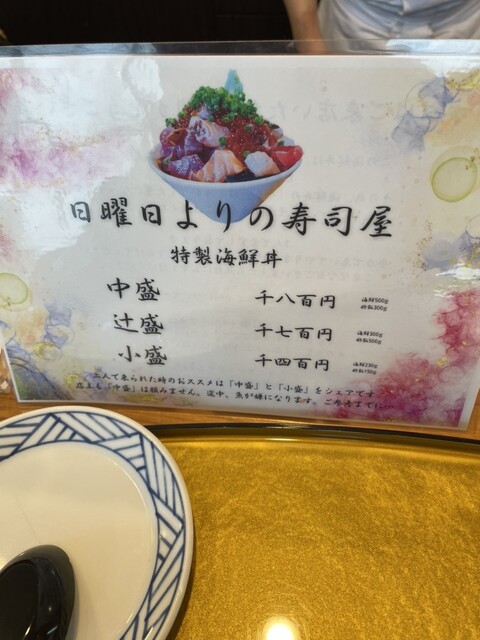 日曜日よりの寿司屋
特製海鮮丼
中盛 千八百円 海鮮500g
炒飯300g
辻盛 千七百円 海鮮300g
炒飯500g
小盛 千四百円 海鮮230g
炒飯150g
二人で来られた時のおススメは「中盛」と「小盛」をシェアです
店主も「中盛」は頼みません。途中、魚が嫌になります。ご参考までに…